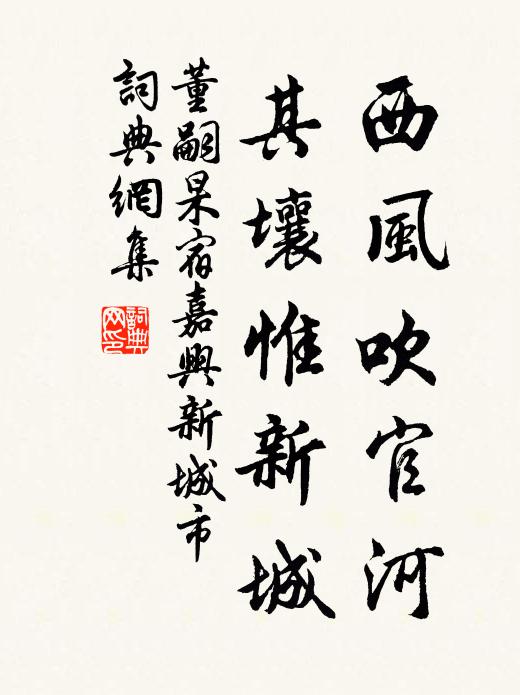 西風吹官河
其壤惟新城
董嗣杲宿嘉興新城市
詞典網集
詞典网印